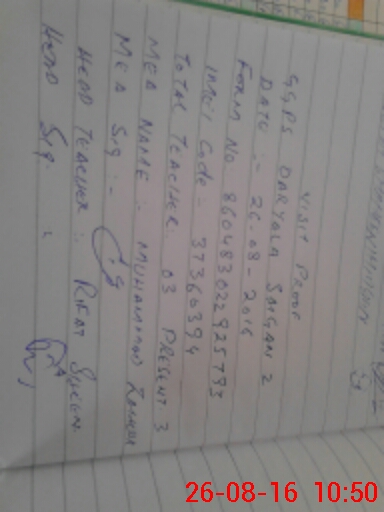 VISIT PROOF
GGPS DARYOLA SAIGAN 2
DATE :- 26-08-2016
FORM NO. 860483022925793
EMIS Code - 37360394
TOTAL TEACHER 03 PRESENT 3
MEA NAME :- MUHAMMAD
MEA Sig :-
HEAD TEACHER :
HEAD Sig.
26-08-16 10:50